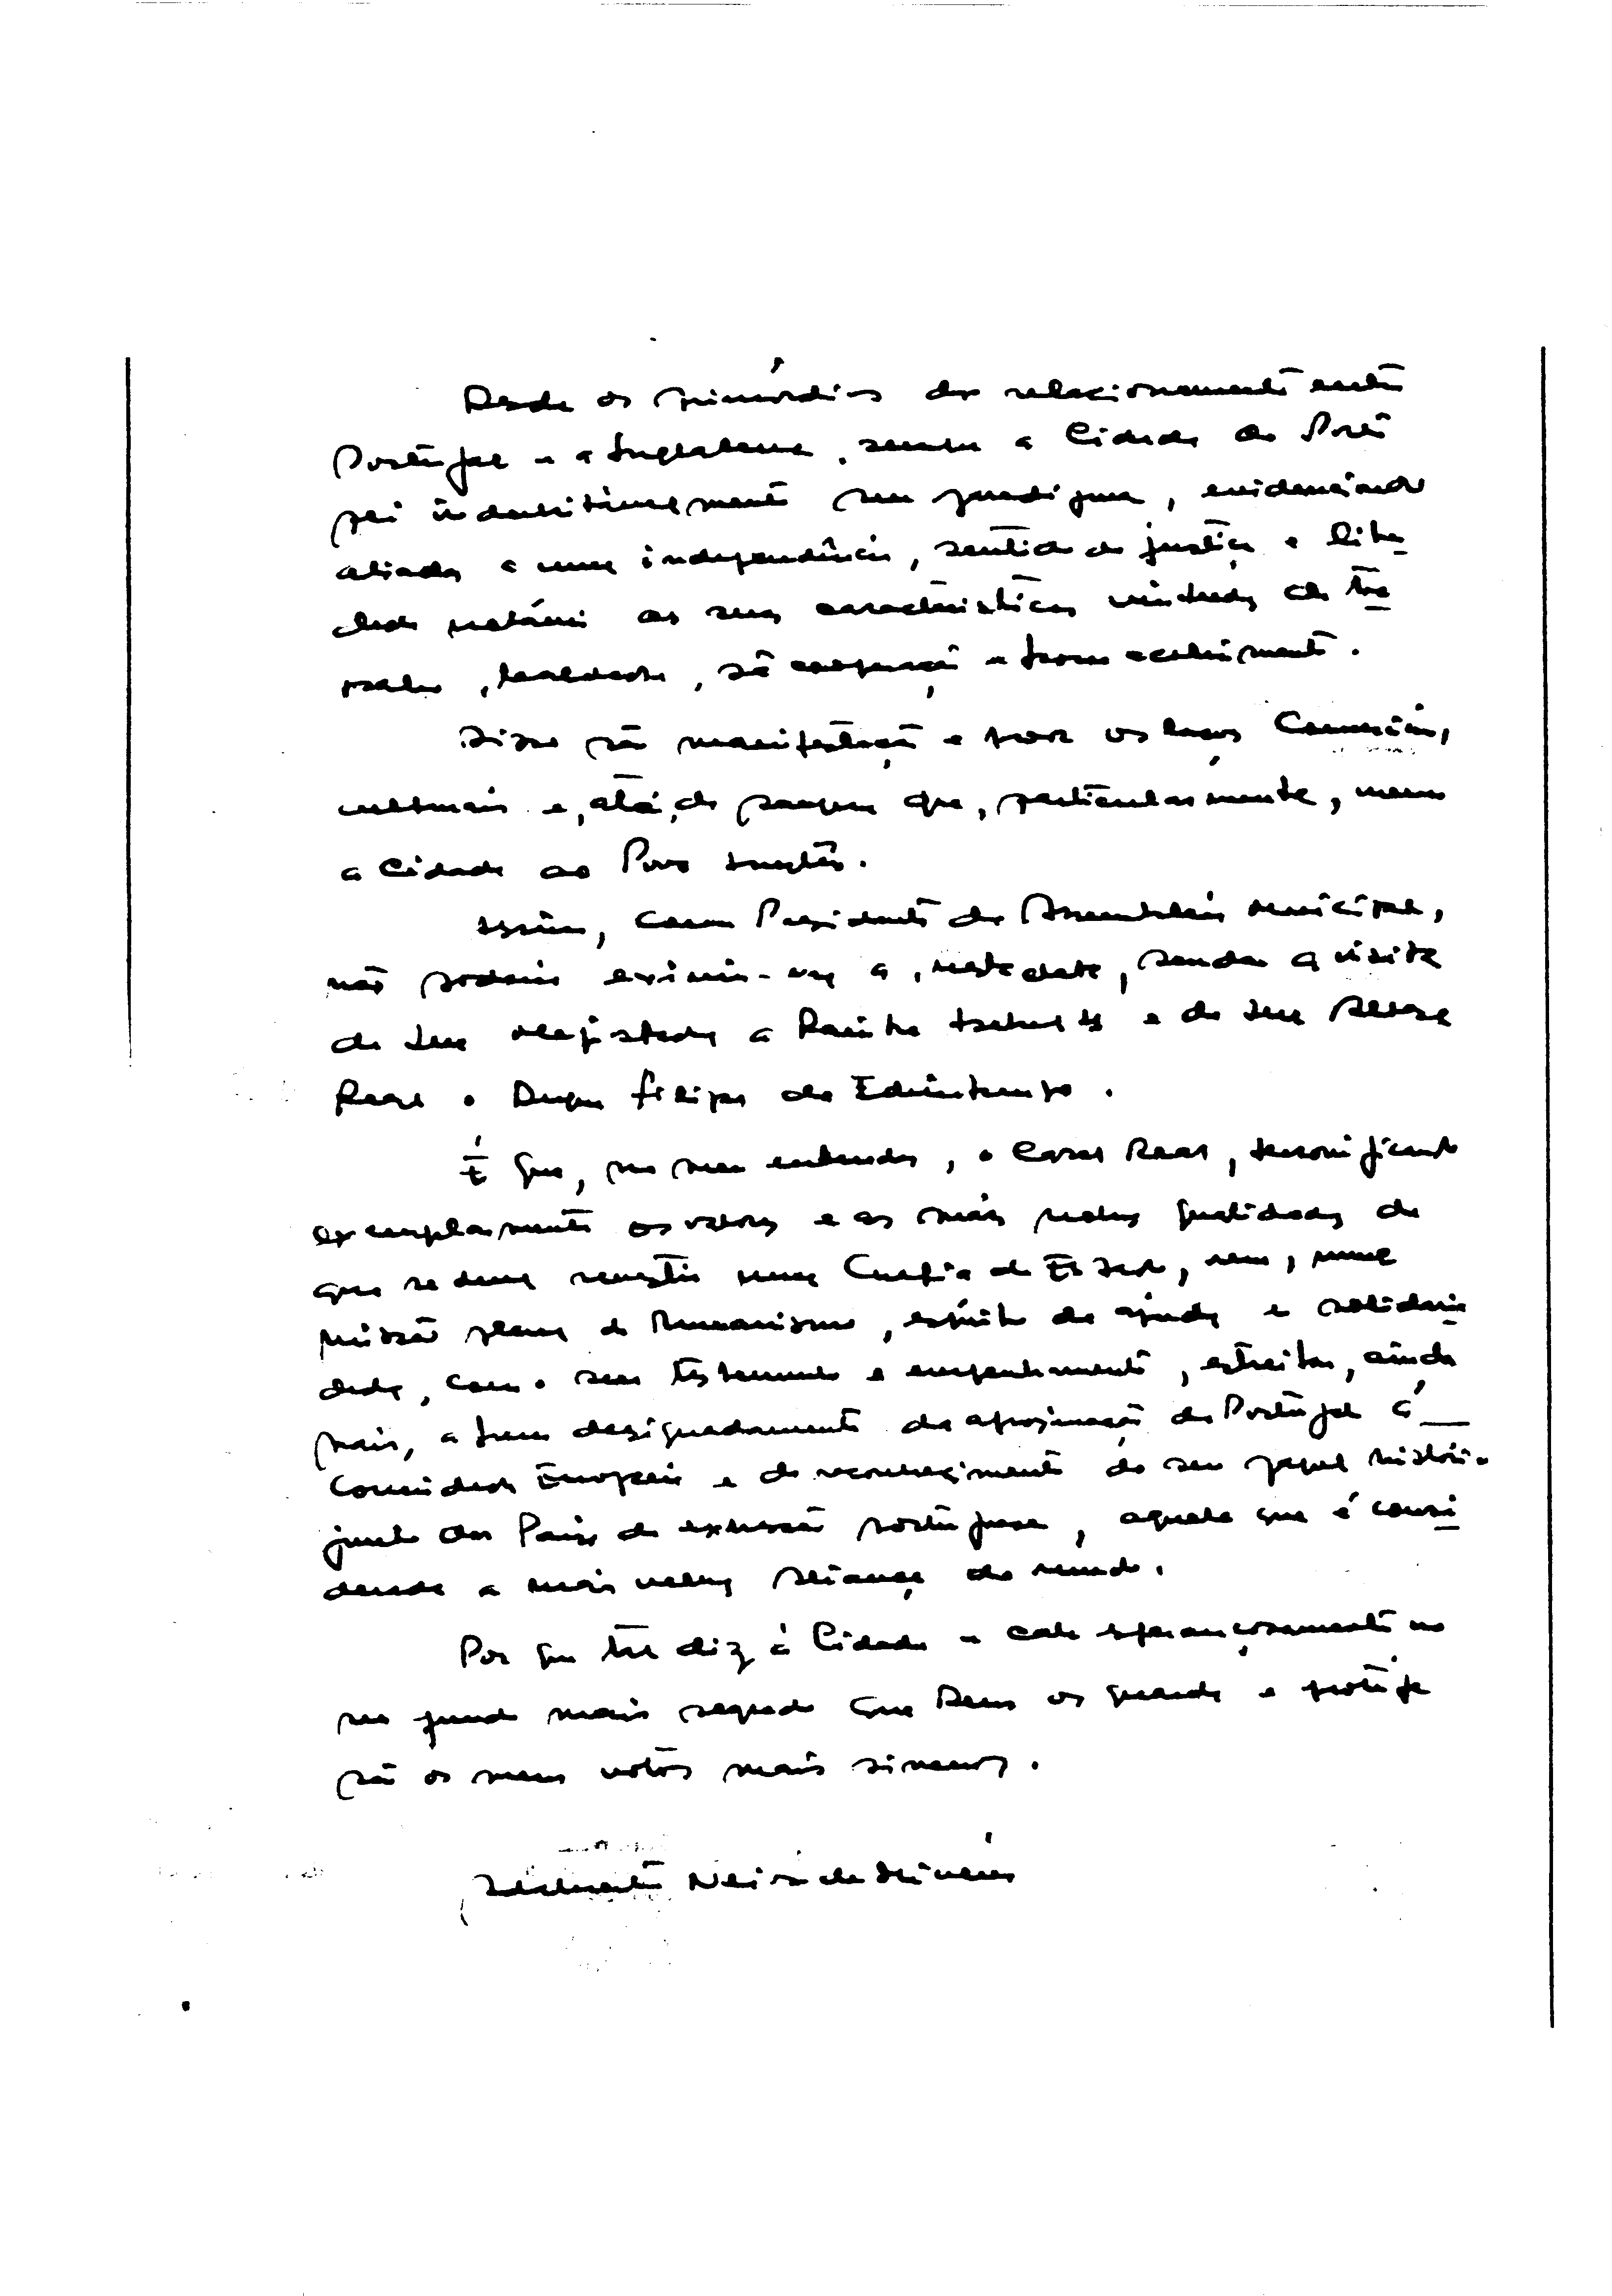 Desde os primórdios do relacionamento entre
Portugal e a Inglaterra, sempre a Cidade do Porto
foi indubitàvelmente seu paradigma, evidenciando
aliada a uma independência, sentido de justiça e liber
dade notáveis as suas características virtudes de tra
balho, lealdade, sã cooperação e bom acolhimento.
Disso são manifestação e prova os laços Comerciais,
culturais e, até, de sangue que, particularmente, unem
a Cidade ao Povo Inglês.
Assim, como Presidente da Assembleia Municipal,
não poderia eximir-me a, nesta data, saudar a visita
de Sua Majestade a Rainha Isabel II e de Sua Alteza
Real o Duque Filipe de Edimburgo.
É que, no meu entender, o Casal Real, personificando
exemplarmente os valores e as mais nobres qualidades de
que se deve revestir uma Chefia de Estado, vem, numa
missão plena de humanismo, espírito de ajuda e solidarie
dade, com o seu testemunho e empenhamento, estreitar, ainda
mais, a bem designadamente da aproximação de Portugal à
Comunidade Europeia e do reconhecimento do seu papel históri-
junto dos Países de expressão portuguesa, aquela que é consi
derada a mais velha Aliança do mundo.
Por que tal diz à Cidade e cala esperançosamente no
seu fundo mais sagrado Que Deus os guarde e proteja
são os meus votos mais sinceros.